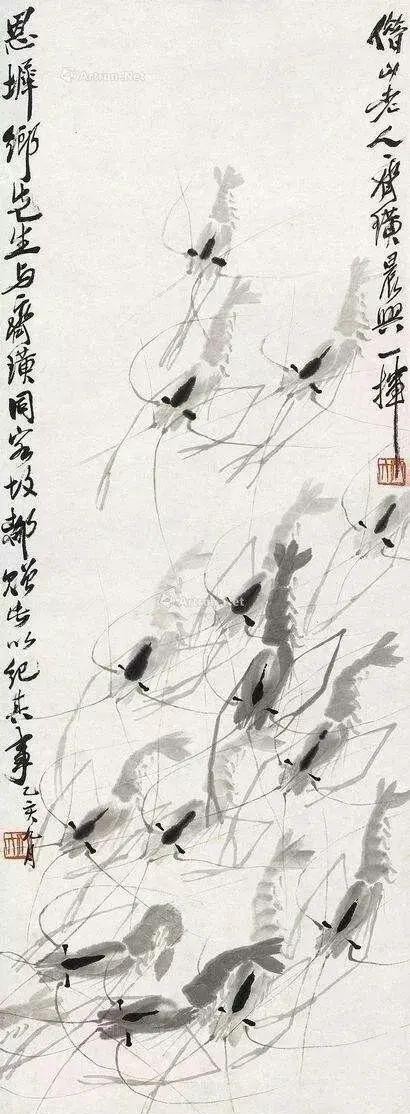 借山老人齊璜晨興一揮
恩墀鄉先生与齊璜同客故都贈此以紀其事
乙亥月
Artron.Net
Artron.Net